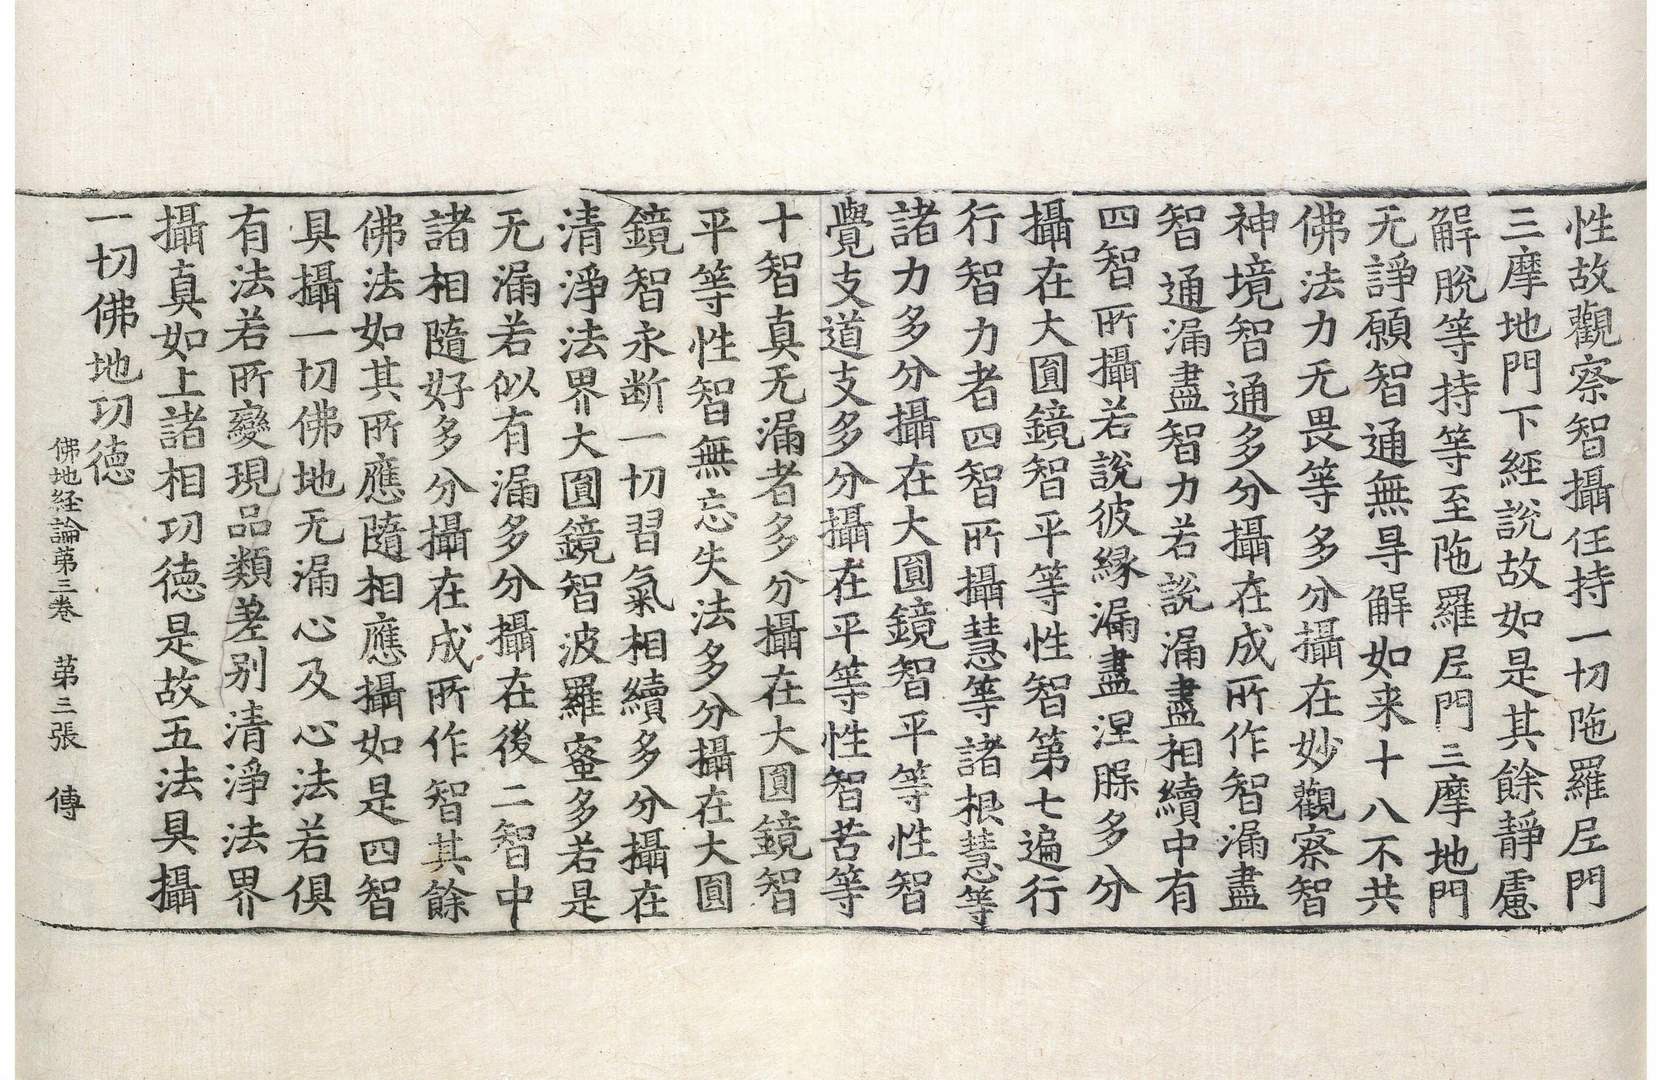 性故觀察智攝任持一切陁羅尼門
三摩地門下經說故如是其餘靜慮
解脫等持等至陁羅尼門三摩地門
无諍願智通無㝵解如来十八不共
佛法力无畏等多分攝在妙觀察智
神境智通多分攝在成所作智漏盡
智通漏盡智力若說漏盡相續中有
四智所攝若說彼緣漏盡涅槃多分
攝在大圓鏡智平等性智第七遍行
行智力者四智所攝慧等諸根慧等
諸力多分攝在大圓鏡智平等性智
覺支道支多分攝在平等性智苦等
十智真无漏者多分攝在大圓鏡智
平等性智無忘失法多分攝在大圓
鏡智永斷一切習氣相續多分攝在
清淨法界大圓鏡智波羅蜜多若是
无漏若似有漏多分攝在後二智中
諸相隨好多分攝在成所作智其餘
佛法如其所應隨相應攝如是四智
具攝一切佛地无漏心及心法若俱
有法若所變現品類差别清淨法界
攝真如上諸相功德是故五法具攝
一切佛地功德
佛地经論苐三卷 苐三張 傳